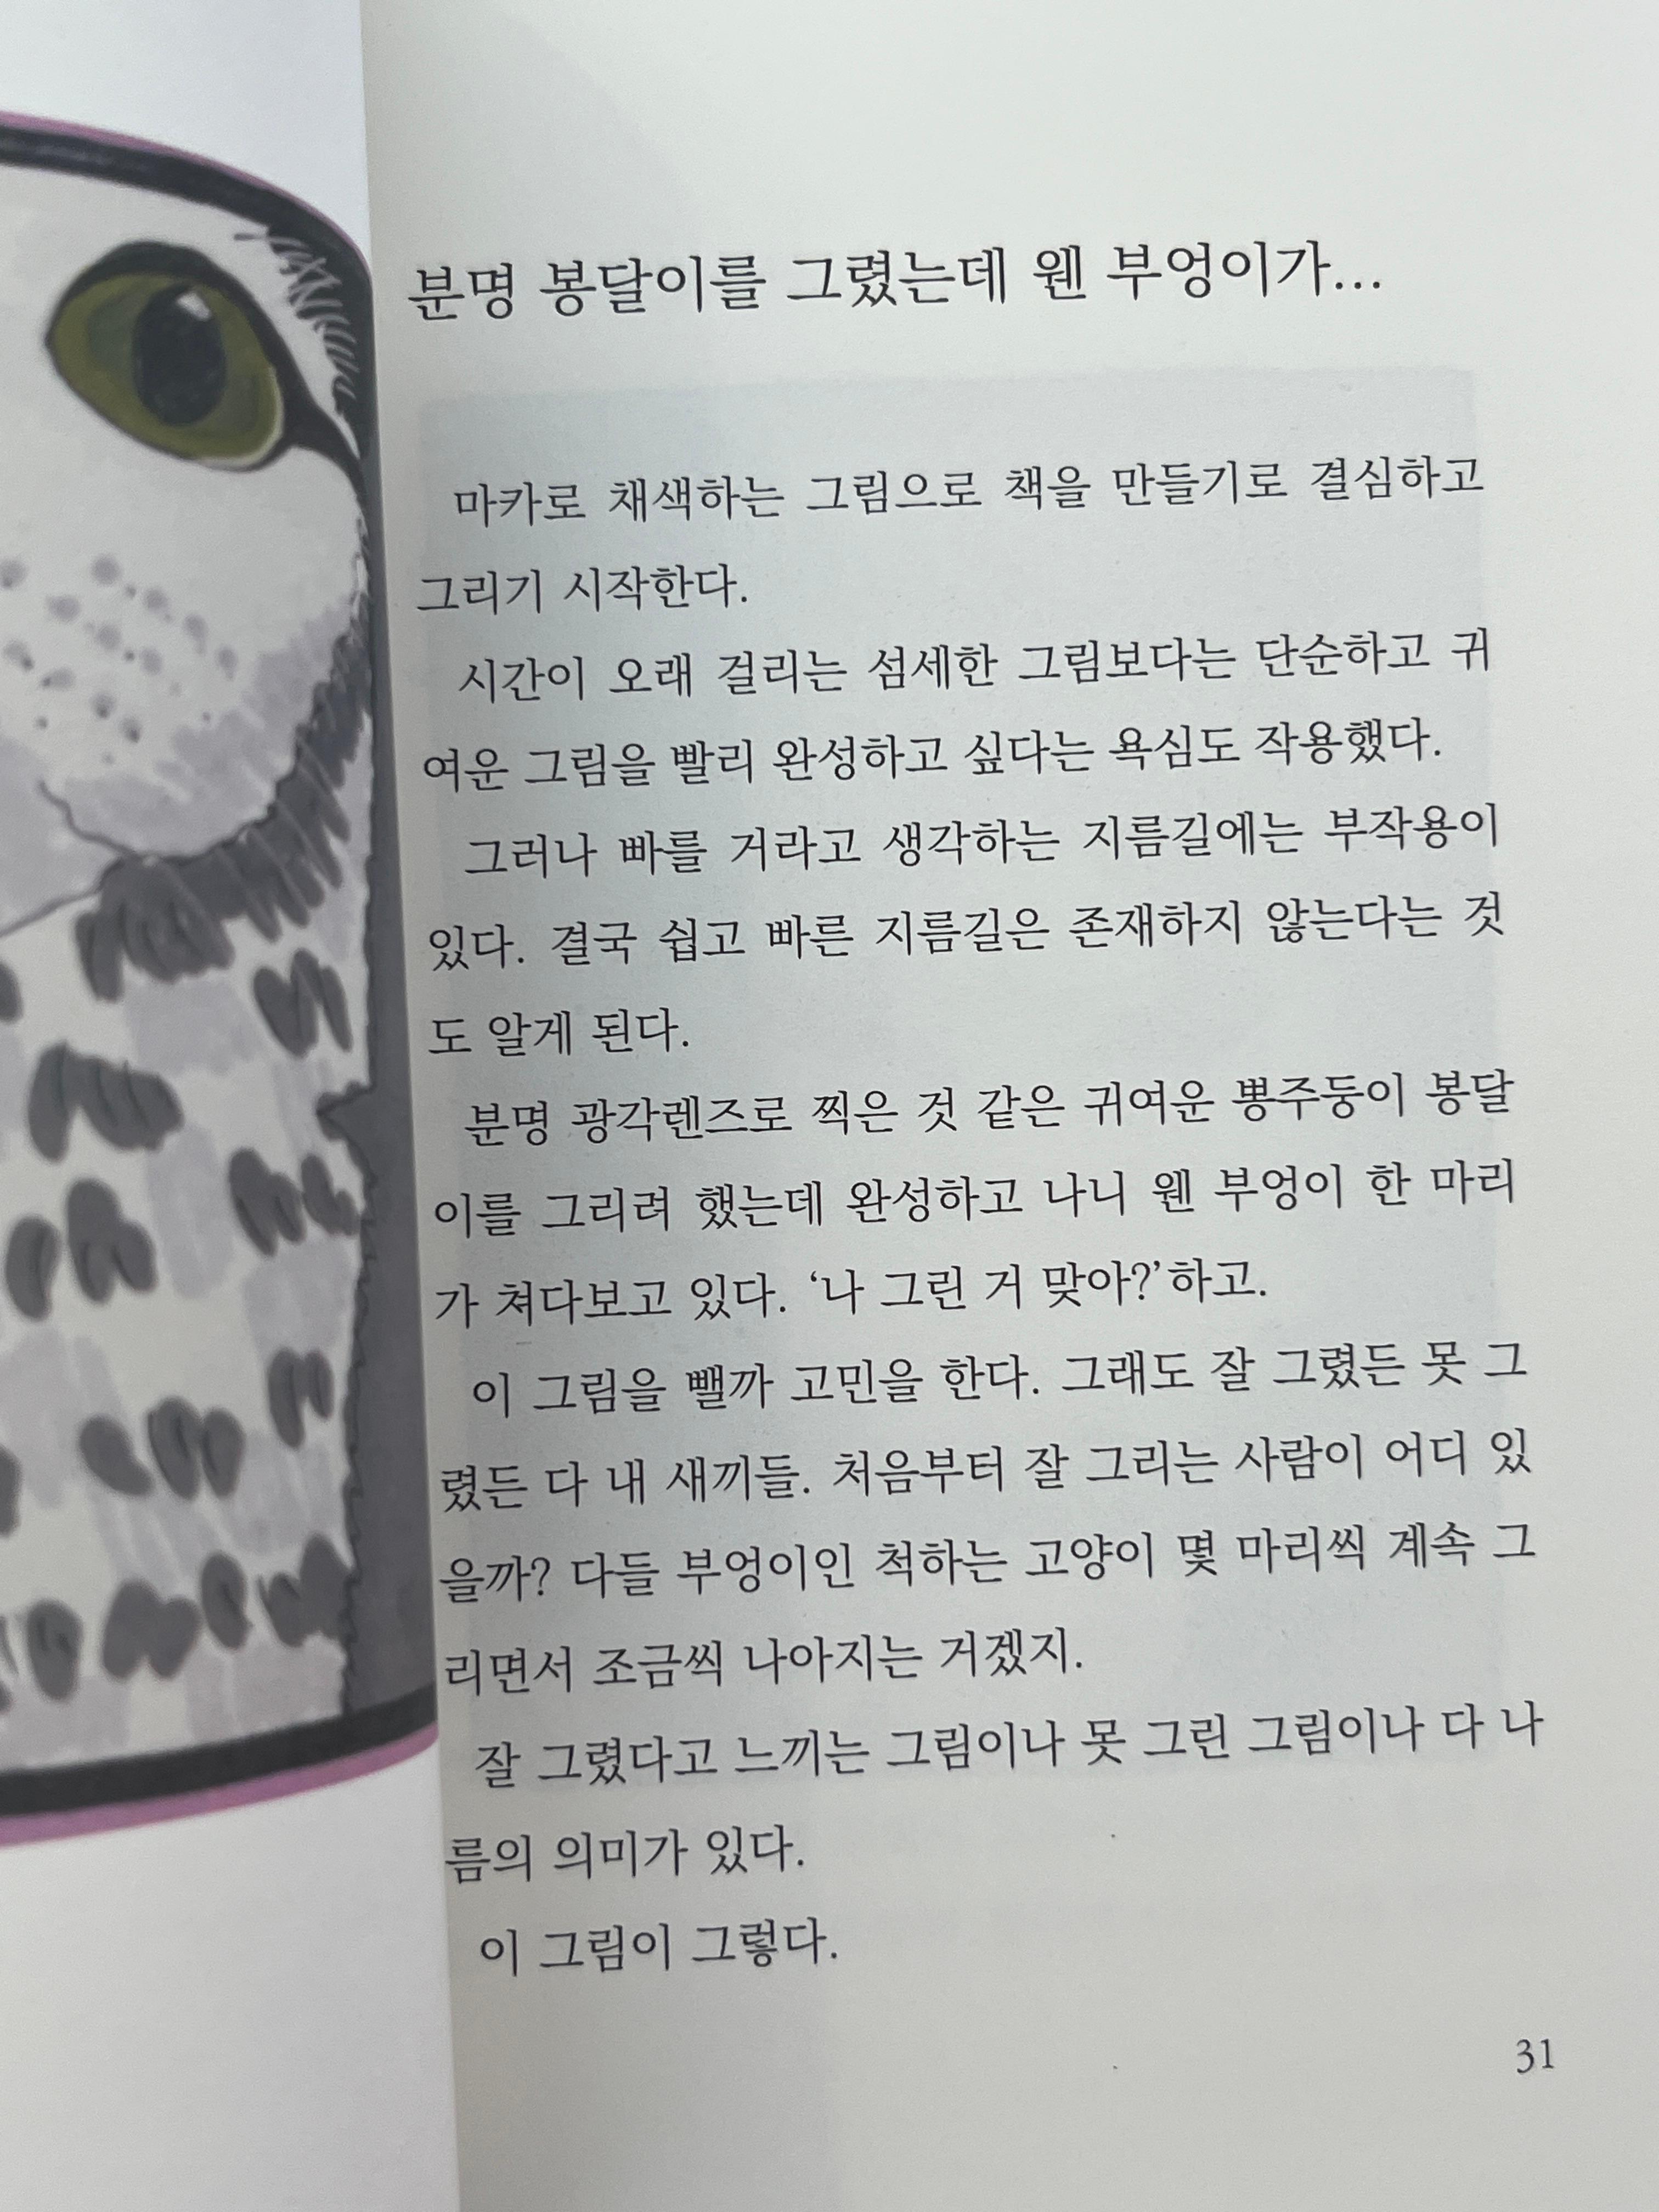 분명 봉달이를 그렸는데 웬 부엉이가...
마카로 채색하는 그림으로 책을 만들기로 결심하고
그리기 시작한다.
시간이 오래 걸리는 섬세한 그림보다는 단순하고 귀
여운 그림을 빨리 완성하고 싶다는 욕심도 작용했다.
그러나 빠를 거라고 생각하는 지름길에는 부작용이
있다. 결국 쉽고 빠른 지름길은 존재하지 않는다는 것
도 알게 된다.
분명 광각렌즈로 찍은 것 같은 귀여운 뽕주둥이 봉달
이를 그리려 했는데 완성하고 나니 웬 부엉이 한 마리
가 쳐다보고 있다. ‘나 그린 거 맞아?’하고.
이 그림을 뺄까 고민을 한다. 그래도 잘 그렸든 못 그
렸든 다 내 새끼들. 처음부터 잘 그리는 사람이 어디 있
을까? 다들 부엉이인 척하는 고양이 몇 마리씩 계속 그
리면서 조금씩 나아지는 거겠지.
잘 그렸다고 느끼는 그림이나 못 그린 그림이나 다 나
름의 의미가 있다.
이 그림이 그렇다.
31